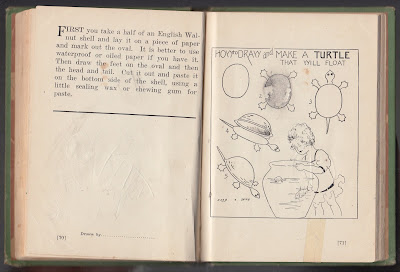 FIRST you take a half of an English Wal-
nut shell and lay it on a piece of paper
and mark out the oval. It is better to use
waterproof or oiled paper if you have it.
Then draw the feet on the oval and then
the head and tail. Cut it out and paste it
on the bottom side of the shell, using a
little sealing wax or chewing gum for
paste.
Drawn by
HOW TO DRAW and MAKE A TURTLE
THAT WILL FLOAT
1
2
3
4
5